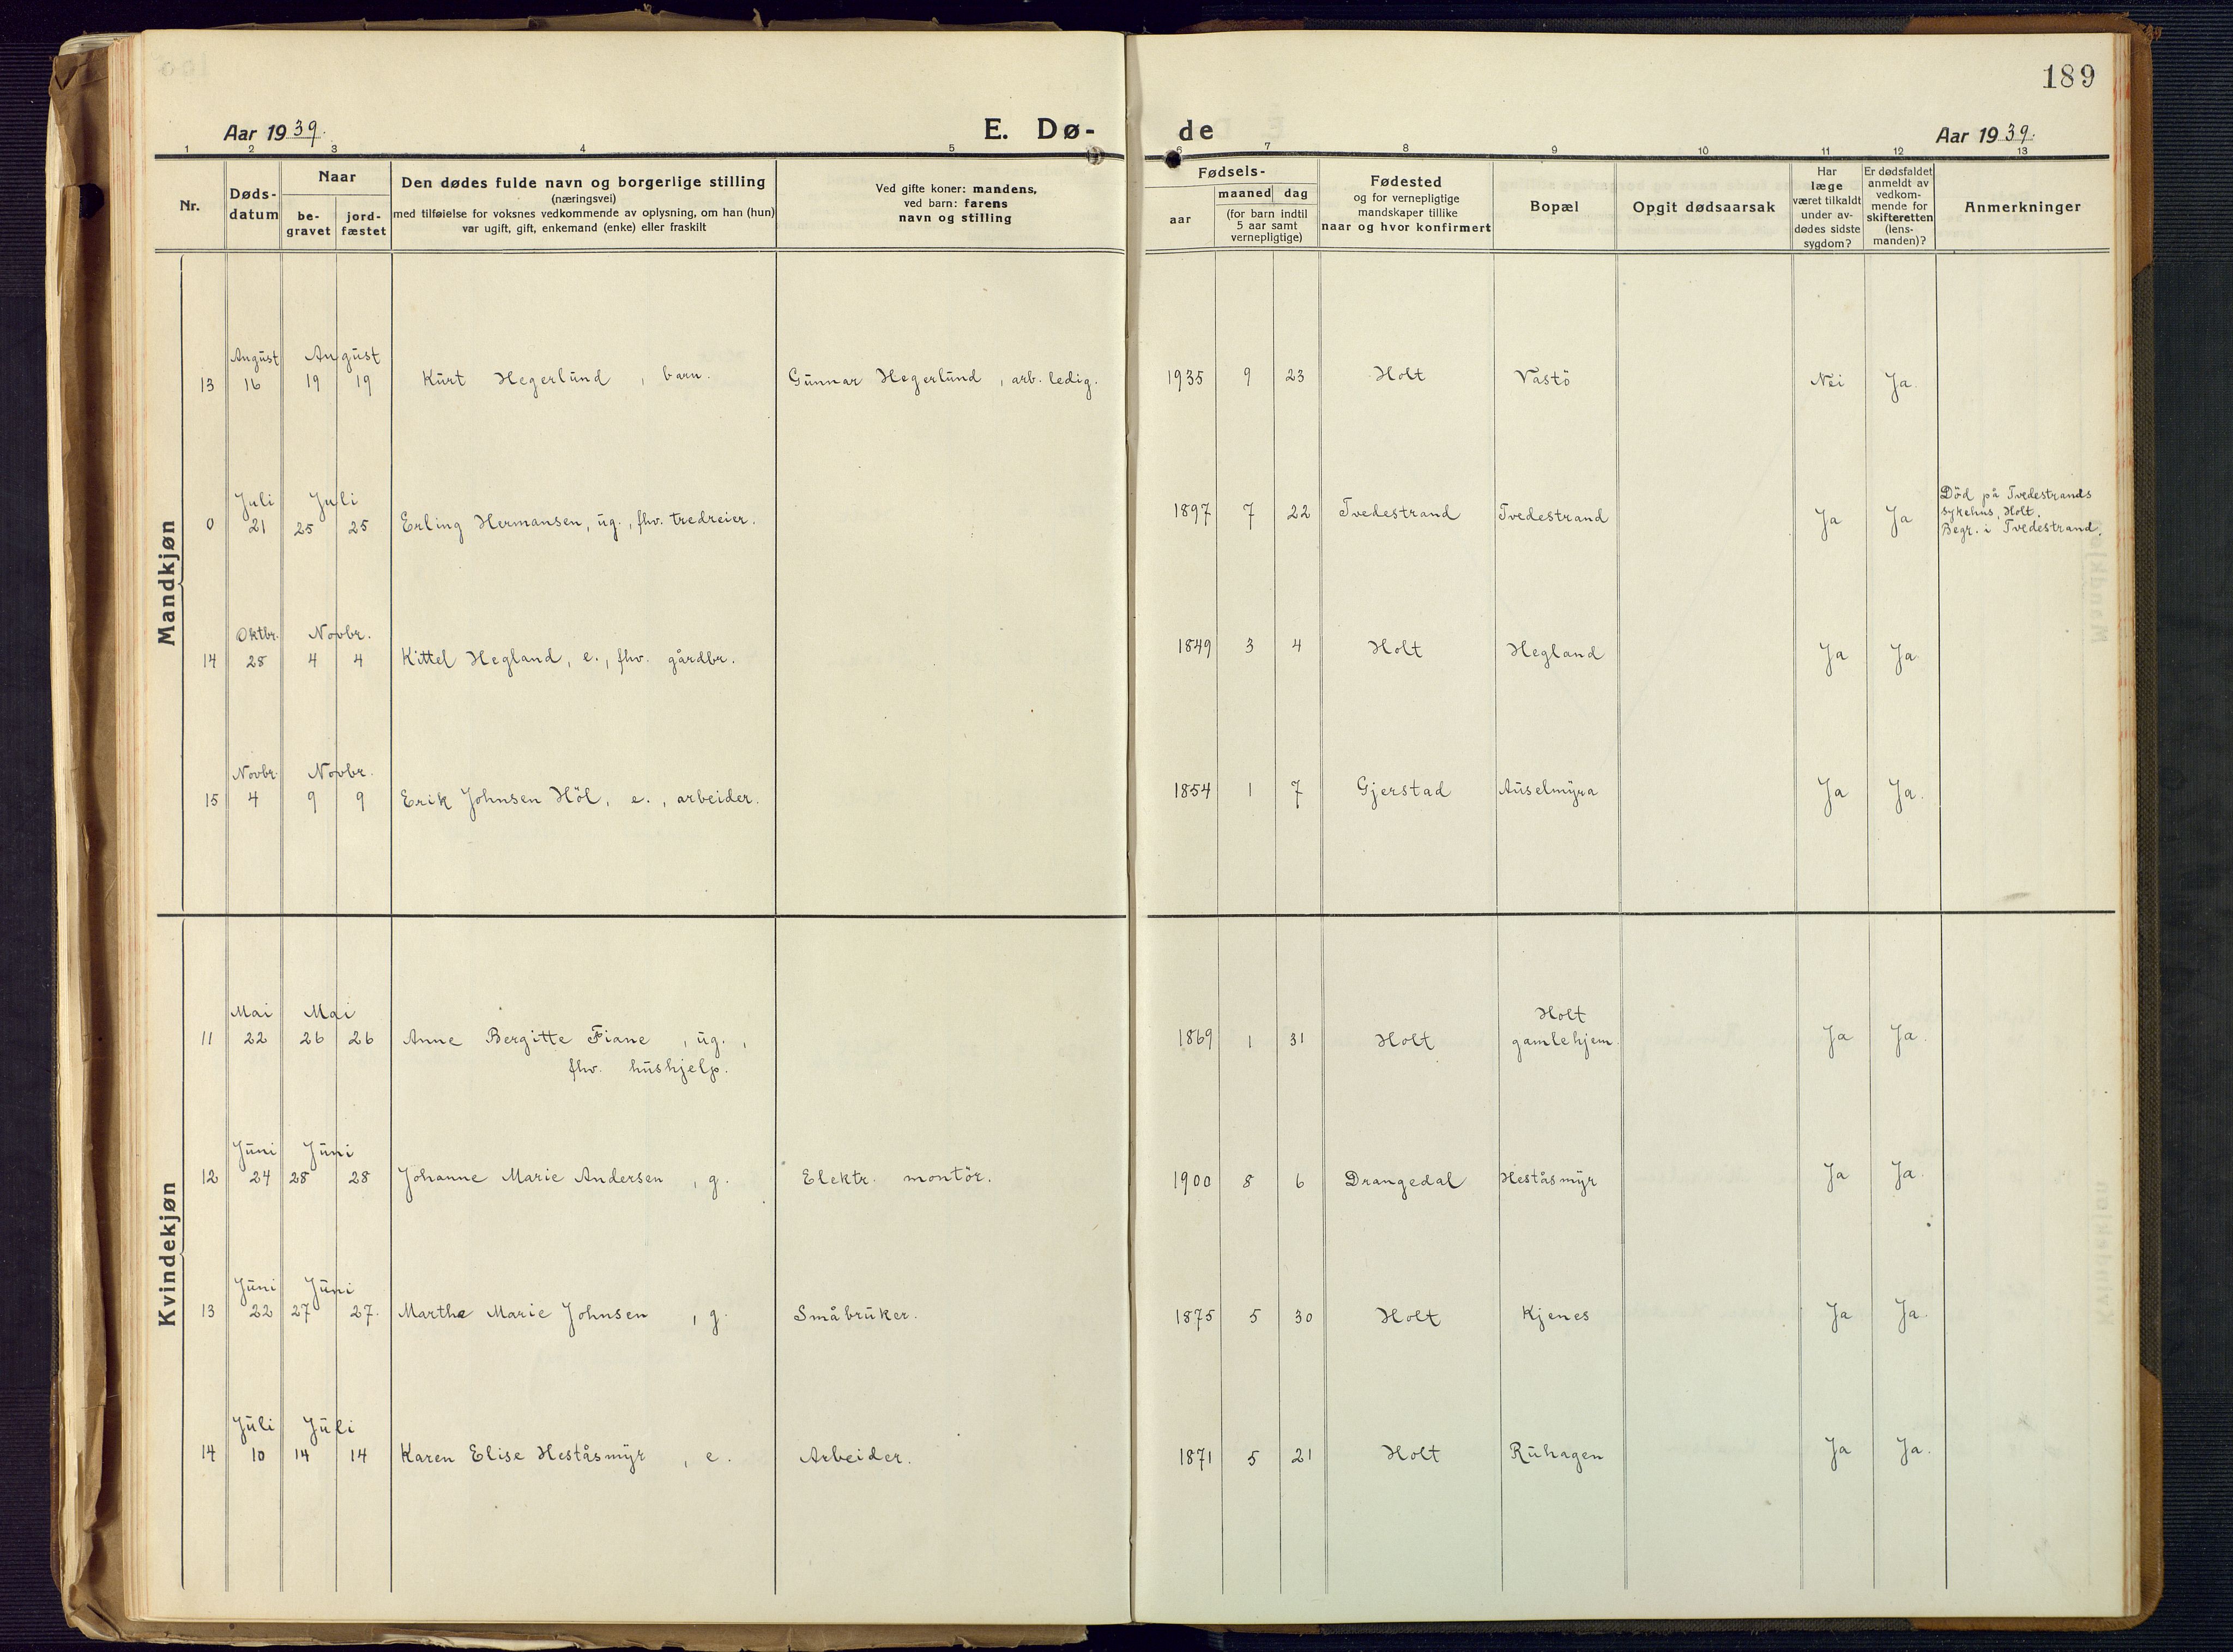 189
Aar 1939.
E. Dø-
de
Aar 1939.
1 2 3 4 5 6 7 8 9 10 11 12 13
Nr.
Døds-
datum
Naar
be-
gravet
jord-
fæstet
Den dødes fulde navn og borgerlige stilling
(næringsvei)
med tilføielse for voksnes vedkommende av oplysning, om han (hun)
var ugift, gift, enkemand (enke) eller fraskilt
Ved gifte koner: mandens,
ved barn: farens
navn og stilling
Fødsels-
aar
maaned dag
(for barn indtil
5 aar samt
vernepligtige)
Fødested
og for vernepligtige
mandskaper tillike
naar og hvor konfirmert
Bopæl
Opgit dødsaarsak
Har
læge
været tilkaldt
under av-
dødes sidste
sygdom?
Er dødsfaldet
anmeldt av
vedkom-
mende for
skifteretten
(lens-
manden)?
Anmerkninger
Mandkjøn
August August
13 16 19 19 Kurt Hegerlund, barn. Gunnar Hegerlund, arb. ledig. 1935 9 23 Holt Våstö Nei Ja.
Juli Juli
0 21 25 25 Erling Hermansen, ug., fhv. tredreier. 1897 7 22 Tvedestrand Tvedestrand Ja Ja
Död på Tvedestrands
sykehus, Holt.
Begr. i Tvedestrand.
Oktbr. Novbr.
14 28 4 4 Kittel Hegland, e., fhv. gårdbr. 1849 3 4 Holt Hegland Ja Ja
Novbr. Novbr.
15 4 9 9 Erik Johnsen Höl, e., arbeider. 1854 1 7 Gjerstad Auselmyra Ja Ja.
Kvindekjøn
Mai Mai Holt
11 22 26 26 Anne Bergitte Fiane, ug., 1869 1 31 Holt gamlehjem. Ja Ja.
fhv. hushjelp.
Juni Juni
12 24 28 28 Johanne Marie Andersen, g. Elektr. montör. 1900 8 6 Drangedal Heståsmyr Ja Ja.
Juni Juni
13 22 27 27. Marthe Marie Johnsen, g. Småbruker. 1875 5 30 Holt Kjenes Ja Ja.
Juli Juli
14 10 14 14 Karen Elise Heståsmyr, e. Arbeider. 1871 5 21 Holt Ruhagen Ja Ja.